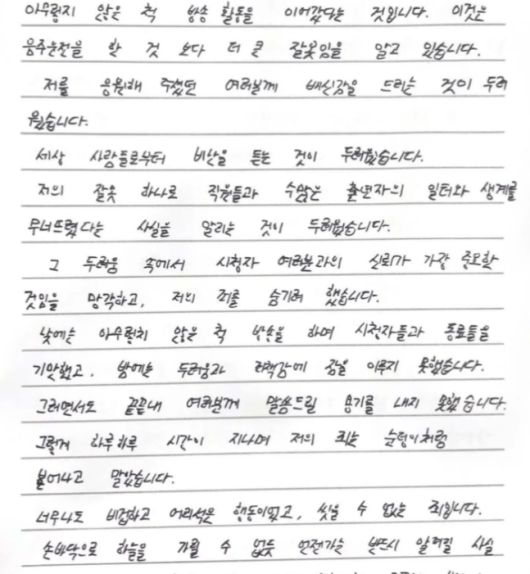 아무렇지 않은 척 방송 활동을 이어갔다는 것입니다. 이것은
음주운전을 한 것 보다 더 큰 잘못임을 알고 있습니다.
저를 응원해 주셨던 여러분께 배신감을 드리는 것이 두려
웠습니다.
세상 사람들로부터 비난을 듣는 것이 두려웠습니다.
저의 잘못 하나로 직원들과 수많은 출연자의 일터와 생계를
무너뜨렸다는 사실을 알리는 것이 두려웠습니다.
그 두려움 속에서 시청자 여러분과의 신뢰가 가장 중요한
것임을 망각하고, 저의 죄를 숨기려 했습니다.
낮에는 아무렇지 않은 척 방송을 하며 시청자들과 동료들을
기만했고, 밤에는 두려움과 죄책감에 잠을 이루지 못했습니다.
그러면서도 끝끝내 여러분께 말씀드릴 용기를 내지 못했습니다.
그렇게 하루하루 시간이 지나며 저의 죄는 눈덩이처럼
불어나고 말았습니다.
너무나도 비겁하고 어리석은 행동이었고, 씻을 수 없는 죄입니다.
손바닥으로 하늘을 가릴 수 없듯 언젠가는 반드시 알려질 사실